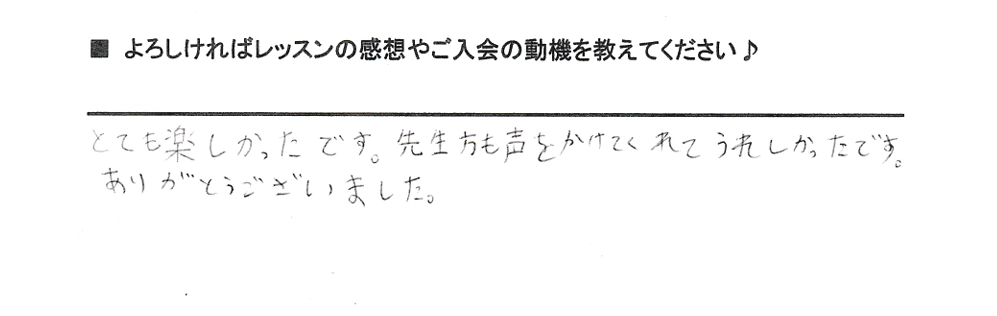 ■ よろしければレッスンの感想やご入会の動機を教えてください♪
とても楽しかったです。先生方も声をかけてくれてうれしかったです。
ありがとうございました。